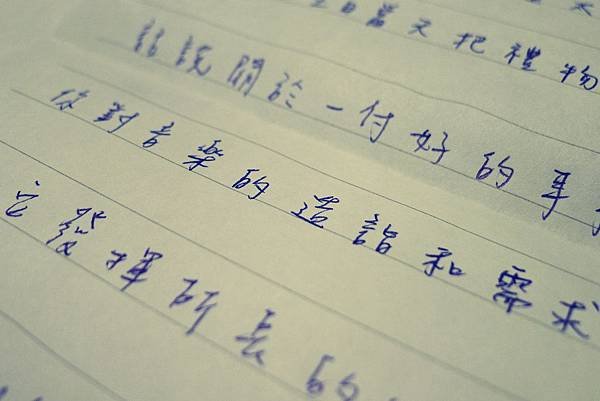 日當天把禮物
話說關於一付好的耳
你對音樂的造詣和需求
它發揮所長的